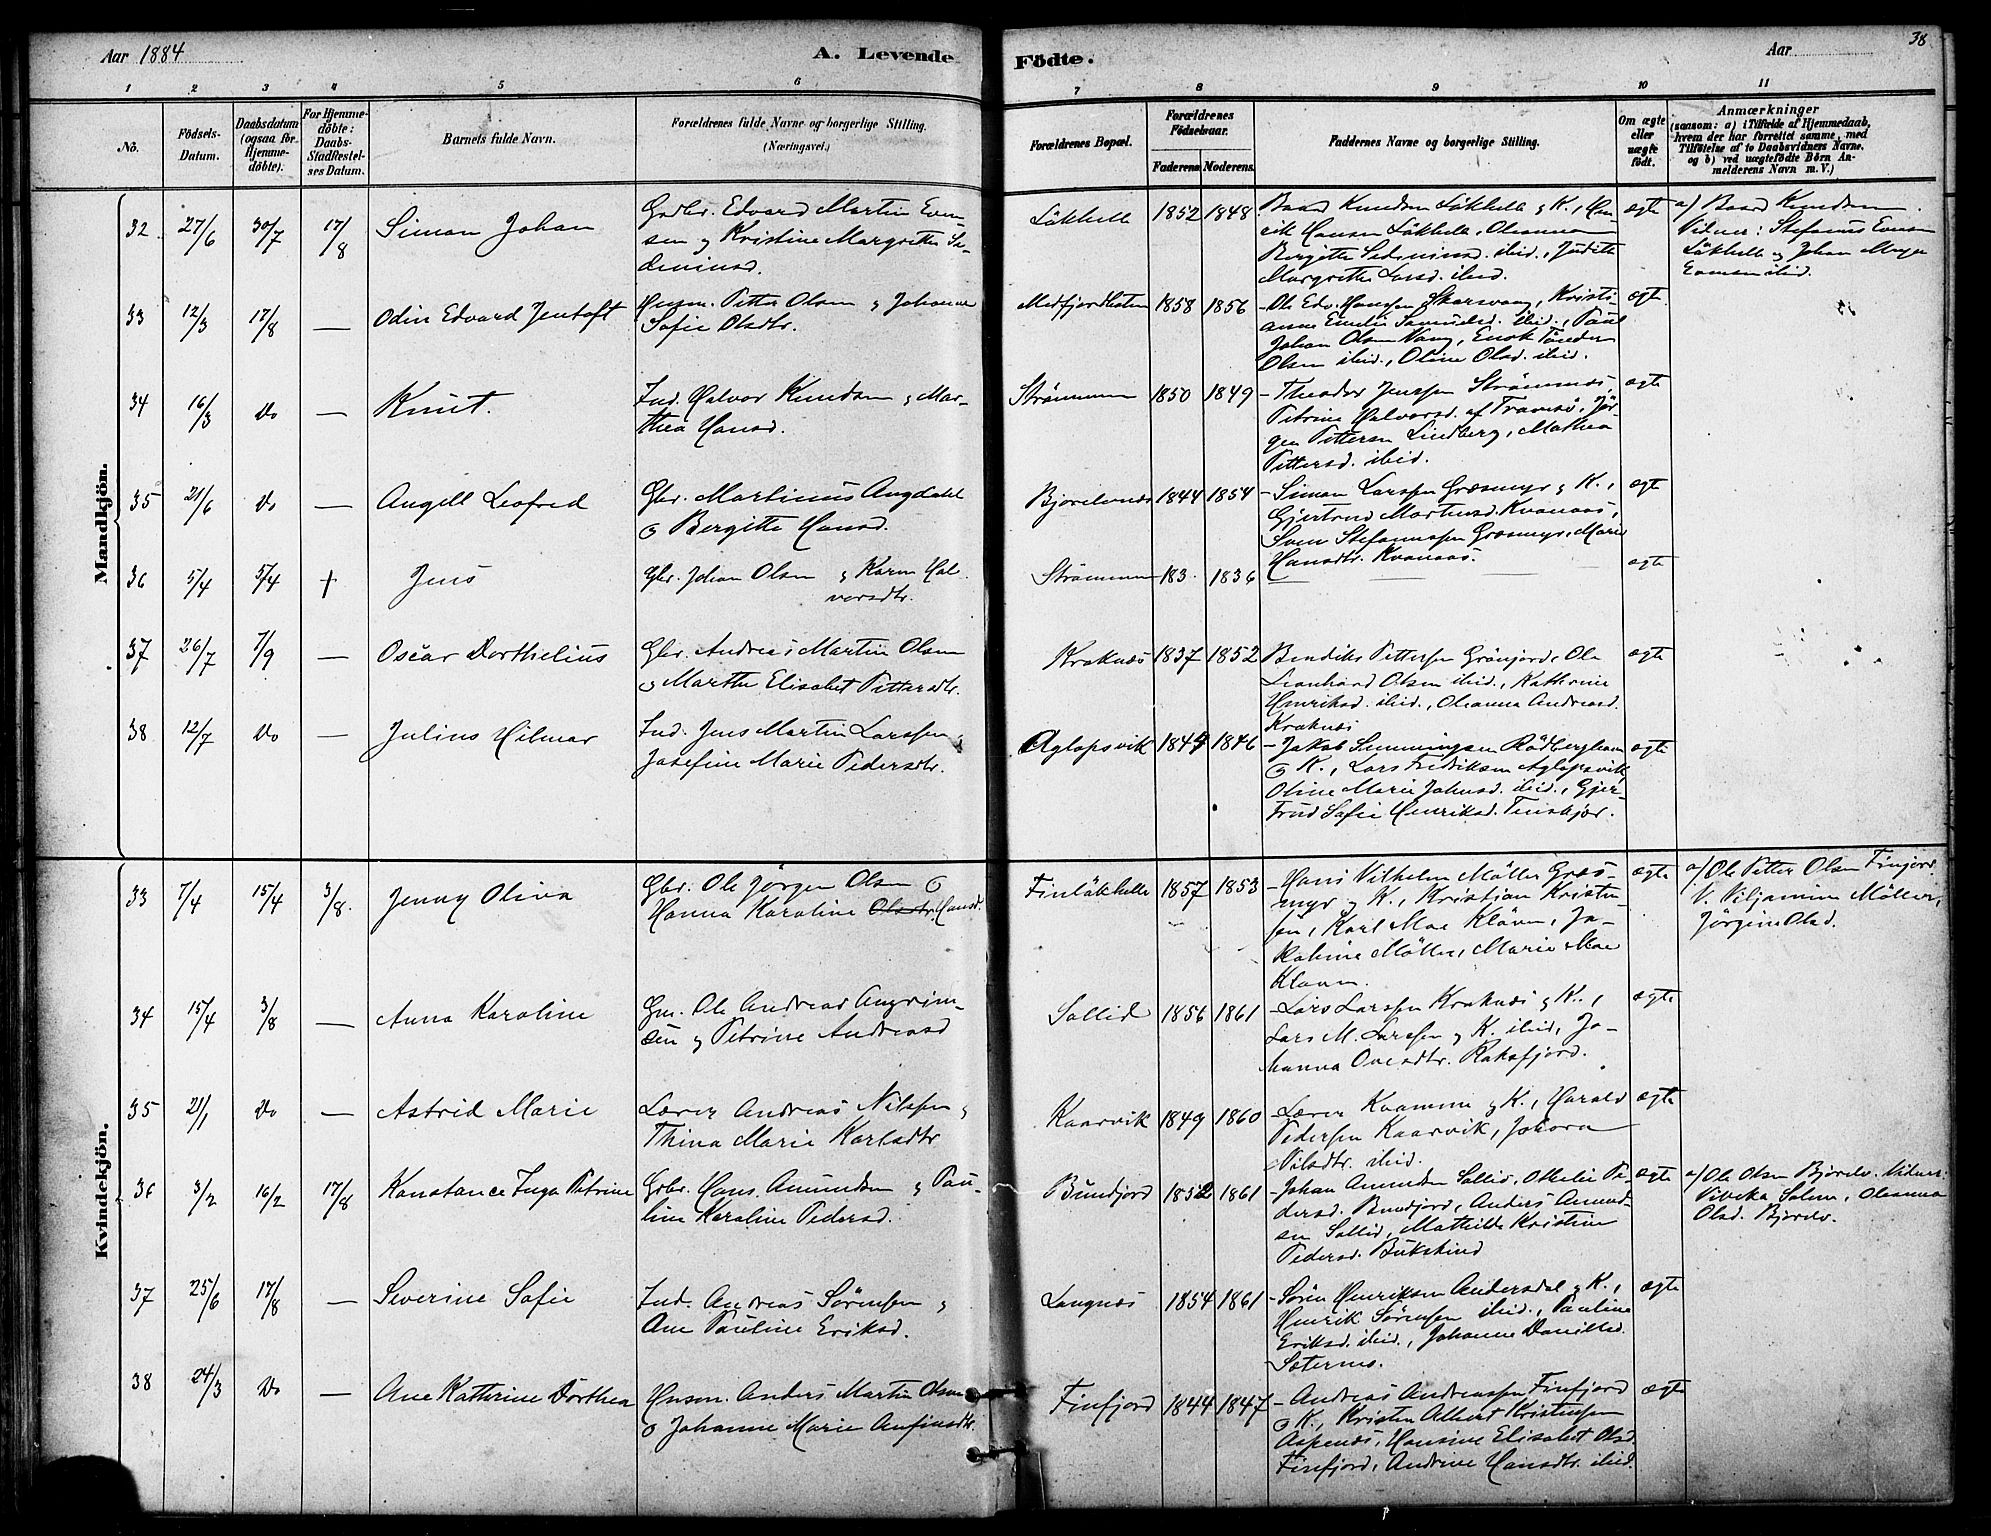 Aar 1884
A. Levende
Födte.
Aar
38
1 2 3 4 5 6 7 8 9 10 11
No.
Födsels-
Datum.
Daabsdatum
(ogsaa for
Hjemme-
döbte).
For Hjemme-
döbte:
Daabs-
Stadfæstel-
ses Datum.
Barnets fulde Navn.
Forældrenes fulde Navne og borgerlige Stilling.
(Næringsvei.)
Forældrenes Bopæl.
Forældrenes
Födselsaar.
Faderens Moderens.
Faddernes Navne og borgerlige Stilling.
Om ægte
eller
uægte
födt.
Anmærkninger
(saasom: a) i Tilfælde af Hjemmedaab,
hvem der har forrettet samme, med
Tilföielse af to Daabsvidners Navne.
og b) ved uægtefödte Börn An-
melderens Navn m. V.)
Mandkjön.
32 27/6 30/7 17/8 Simon Johan
Garbr. Edvard Martin Even-
sen og Kristine Margrethe
Løkhelle 1852 1848
Baard Knudsen Løkhelle og K.,
Hansen Løkhelle, Oleanna
Birgitte ibid., Judith
Margrethe Larsd. ibid.
ægte
a/ Baard Knudsen.
Vidner: Stefanus Evensen
Løkhelle og Johan
Evensen ibid.
33 12/3 17/8 — Odin Edvard Jentoft
Husm. Petter Olsen og Johanna
Sofie Olsdtr.
Medfjordbotn 1858 1856
- Ole Edv. Hansen Skarsvaag, Kristi-
anne Emelie Samuelsd. ibid., Paul
Johan Olsen Vang, Enok Tønder
Olsen ibid., Oline Olsd. ibid.
ægte
34 16/3 Do — Knut.
Ind. Halvor Knudsen og Mar-
thea Hansd.
Strømmen 1850 1849
- Theodor Jenssen Strømnæs,
Petrine Halvorsd. af Tromsø, Jør-
gen Pettersen Lindberg, Mathea
Pettersd. ibid.
ægte
35 21/6 Do — Angell Leofred
Gbr. Martinus Angdahl
og Bergitte Hansd.
Bjorelvnæs 1844 1854
- Simon Larssen Græsmyr og K.,
Gjertrud Martinsd. Kvanaas,
Sven Stefanussen Græsmyr, Marie
Hansdtr. Kvanaas.
ægte
36 5/4 5/4 + Jens
Gbr. Johan Olsen og Karen Hal-
vorsdtr.
Strømmen 183 1836
ægte
37 26/7 7/9 — Oscar Dorthelius
Gbr. Andreas Martin Olsen
og Marthe Elisabet Pettersdtr.
Kraknæs 1837 1852
Bendiks Pettersen Grønjord, Ole
Leonhard Olsen ibid., Kathrine
Henriksd. ibid., Oleanna Andreasd.
Kraknæs
ægte
38 12/7 Do — Julius Hilmar
Ind. Jens Martin Larssen og
Josefine Marie Pedersdtr.
Aglapsvik 1849 1846
- Jakob Simmingsen Rødberghavn
og K., Lars Fredriksen Aglapsvik,
Oline Marie Johnsd. ibid., Gjer-
trud Sofie Henriksd. Finskjør.
ægte
Kvindekjön.
33 7/4 15/4 3/8. Jenny Oliva
Gbr. Ole Jørgen Olsen og
Hanna Karoline Olsdtr Hansd.
Finløkhelle 1857 1853
- Hans Vilhelm Møller Græs-
myr og K., Kristian Kristen-
sen, Karl Moe Kløven, Ja-
kobine Møller, Marie Moe
Kløven.
ægte
a/ Ole Petter Olsen Finjord
V. Viljamine Møller,
Jørgine Olsd.
34 15/4 3/8 — Anna Karoline
Gm. Ole Andreas Angrim-
sen og Petrine Andreasd
Sollid 1856 1861
- Lars Larssen Kraknæs og K.,
Lars M. Larssen og K. ibid, Jo-
hanna Ovesdtr. Kaksfjord.
ægte
35 21/1 Do — Astrid Marie
Lærer Andreas Nilssen og
Thina Marie Karlsdtr
Kaarvik 1849 1860
- Lærer Kvamme og K., Harald
Pedersen Kaarvik,
Nilsdtr. ibid.
ægte
36 3/2 16/2 17/8 Konstance Inga Petrine
Grbr. Hans Amundsen og Pau-
line Karoline Pedersd.
Bundjord 1852 1861
- Johan Amundsen Sollid, Othelie Pe-
dersd. Bundjord, Anders Amund-
sen Sollid, Mathilde Kristine
Pedersd. Bukskind
ægte
a/ Ole Olsen Bjorelv. Vidner:
Vibeka Solem, Oleanna
Olsd. Bjorelv.
37 25/6 17/8 — Severine Sofie
Ind. Andreas Sørensen og
Ane Pauline Eriksd.
Langnæs 1854 1861
- Søren Henriksen Andersdal og K.,
Henrik Sørensen ibid., Pauline
Eriksd. ibid., Johanne Danielsd.
Sæternes.
ægte
38 24/3 Do — Ane Kathrine Dorthea
Husm. Anders Martin Olsen
og Johanne Marie Anfinsdtr.
Finfjord 1844 1847
- Andreas Andreassen Finfjord
og K., Kristen Albert Kristensen
Aspenæs, Hansine Elisabet Olsd.
Finfjord, Andrine Hansdtr. ibid.
ægte